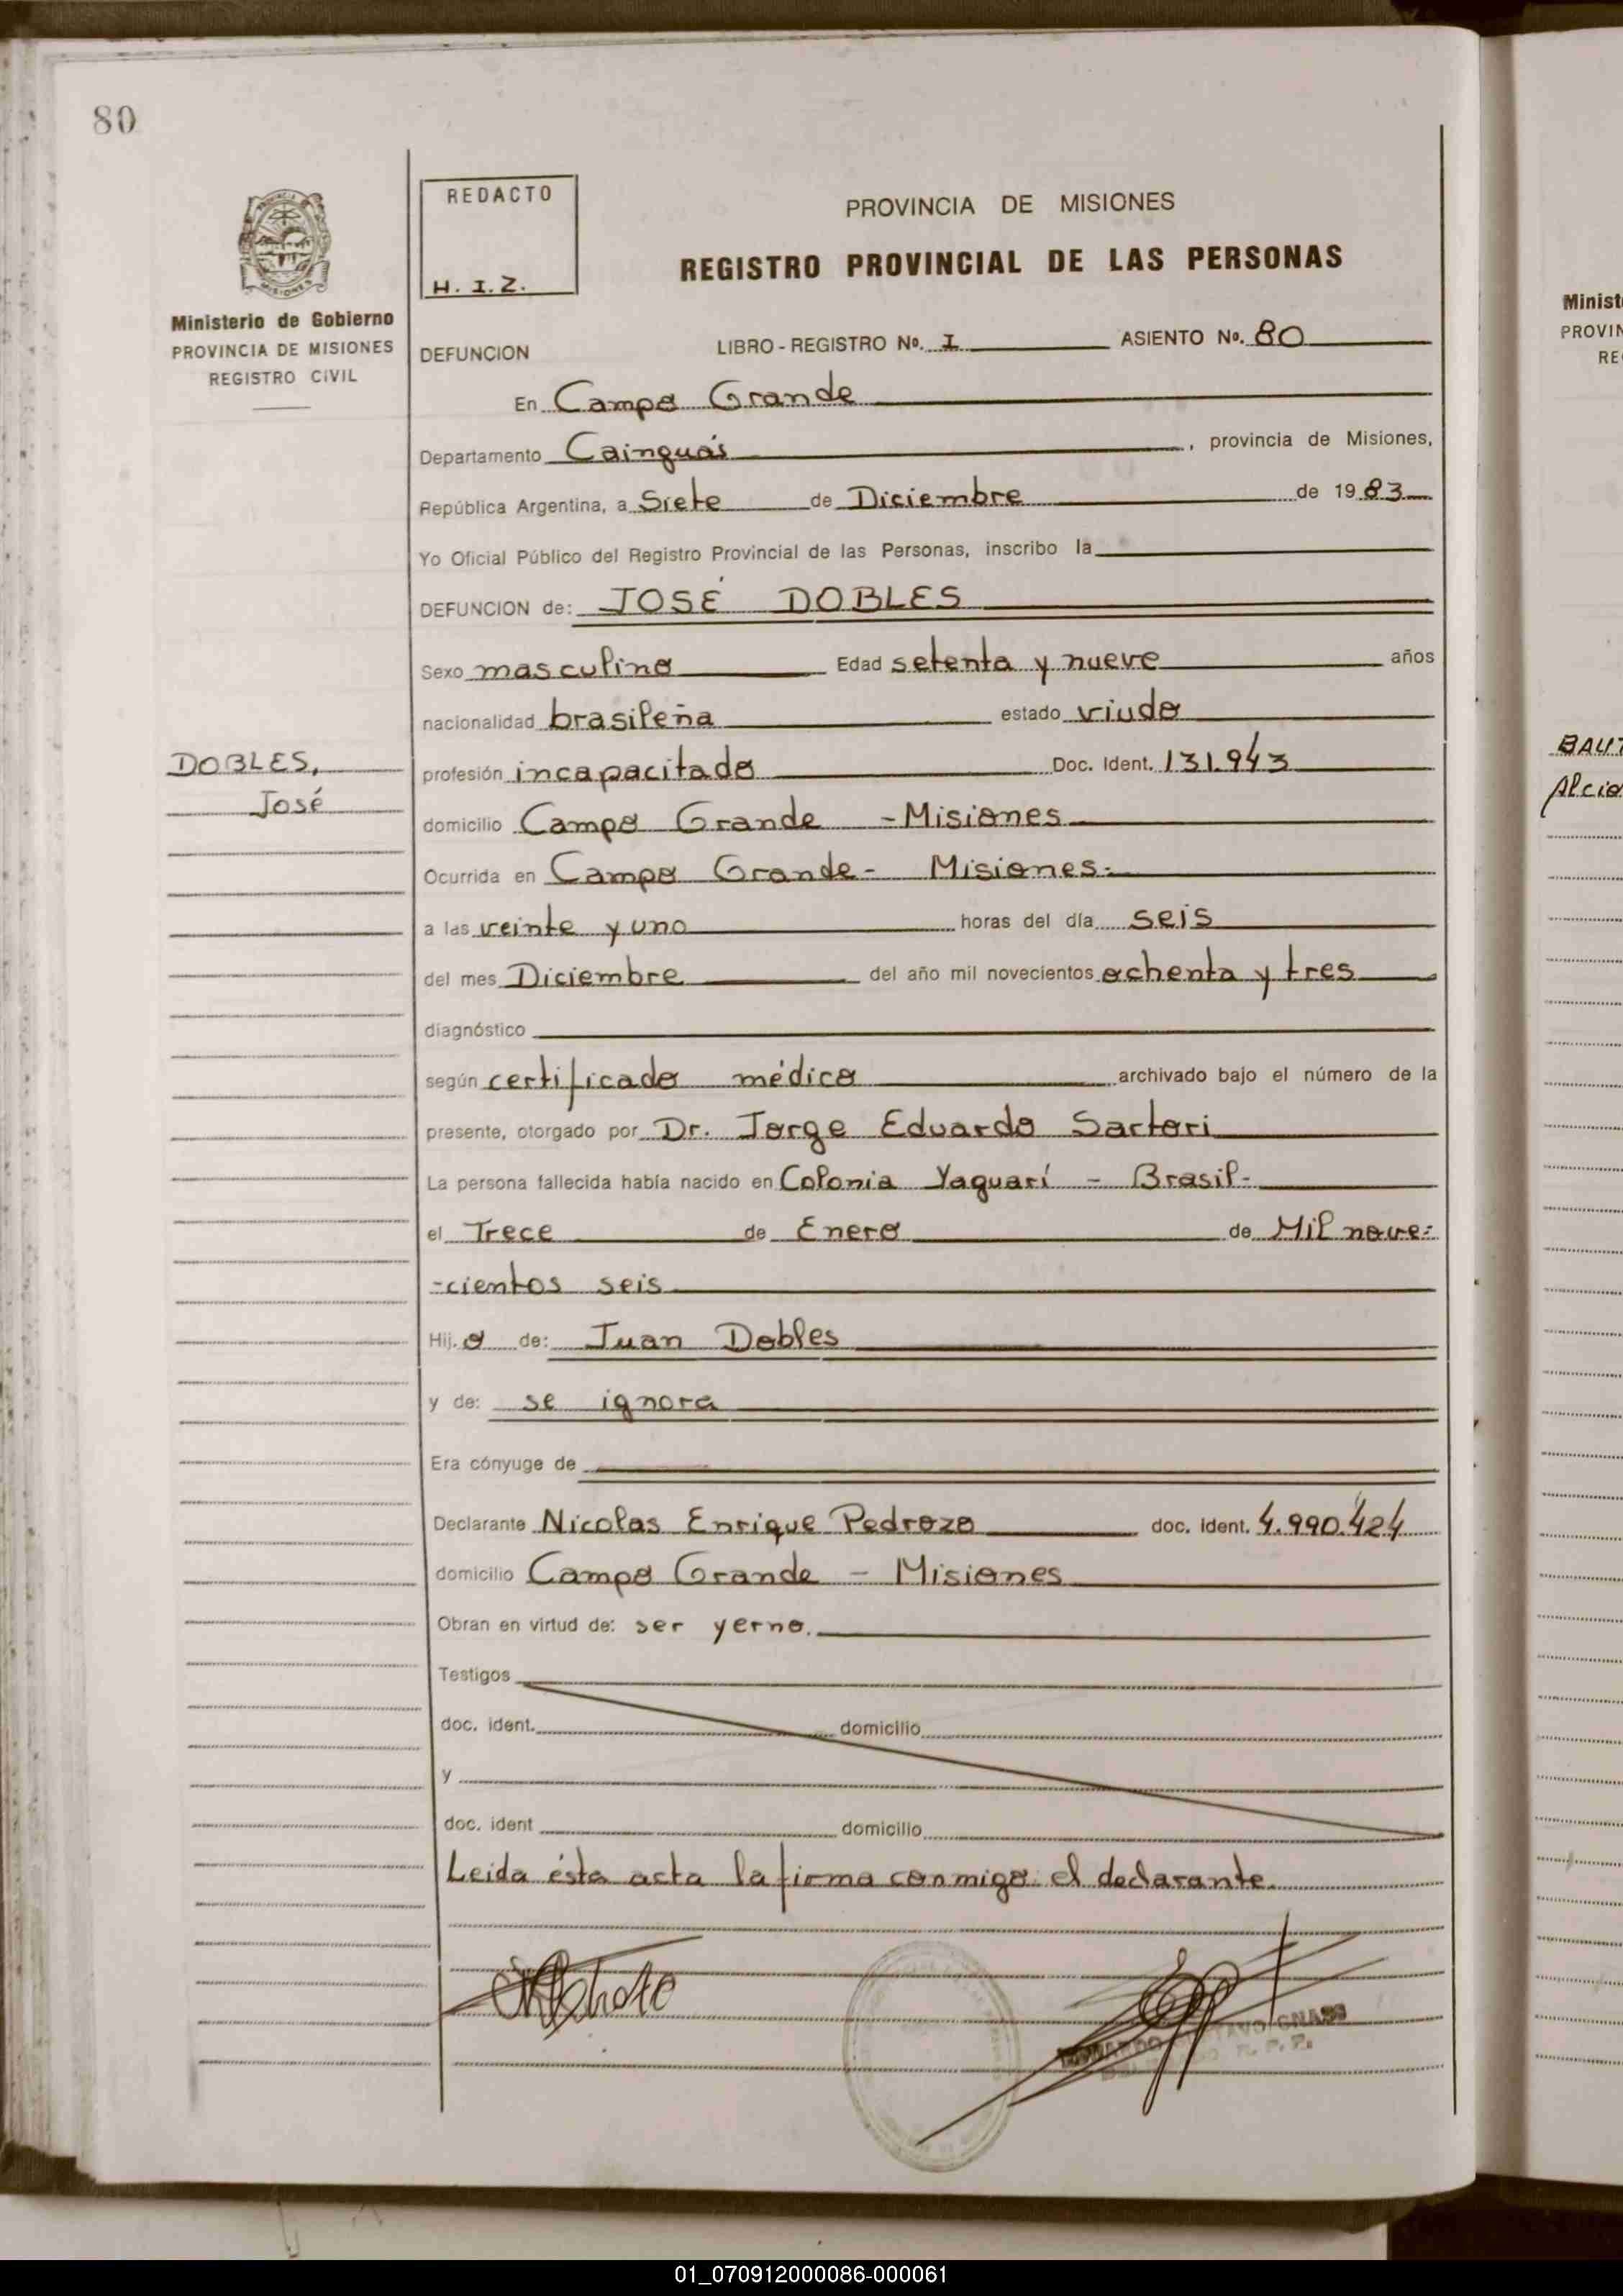 80
REDACTO
H. I. Z.
PROVINCIA DE MISIONES
REGISTRO PROVINCIAL DE LAS PERSONAS
Ministerio de Gobierno
PROVINCIA DE MISIONES
REGISTRO CIVIL
DEFUNCION LIBRO - REGISTRO Nº. I ASIENTO Nº. 80
En Campo Grande
Departamento Cainguás, provincia de Misiones,
República Argentina, a Siete de Diciembre de 1983
Yo Oficial Público del Registro Provincial de las Personas, inscribo la
DEFUNCION de: JOSÉ DOBLES
Sexo masculino Edad setenta y nueve años
nacionalidad brasileña estado viudo
DOBLES,
José
profesión incapacitado Doc. Ident. 131.943
domicilio Campo Grande - Misiones
Ocurrida en Campo Grande - Misiones.
a las veinte y uno horas del día seis
del mes Diciembre del año mil novecientos ochenta y tres
diagnóstico
según certificado médico archivado bajo el número de la
presente, otorgado por Dr. Jorge Eduardo Sartori
La persona fallecida había nacido en Colonia Yaguarí - Brasil-
el Trece de Enero de Mil nove-
-cientos seis
Hij.o de: Juan Dobles
y de: se ignora
Era cónyuge de
Declarante Nicolas Enrique Pedrozo doc. Ident. 4.990.424
domicilio Campo Grande - Misiones
Obran en virtud de: ser yerno.
Testigos
doc. ident. domicilio
y
doc. ident domicilio
Leida ésta acta la firma conmigo el declarante.
Minist
PROVIN
RE
BAUT
Alcio
01_070912000086-000061